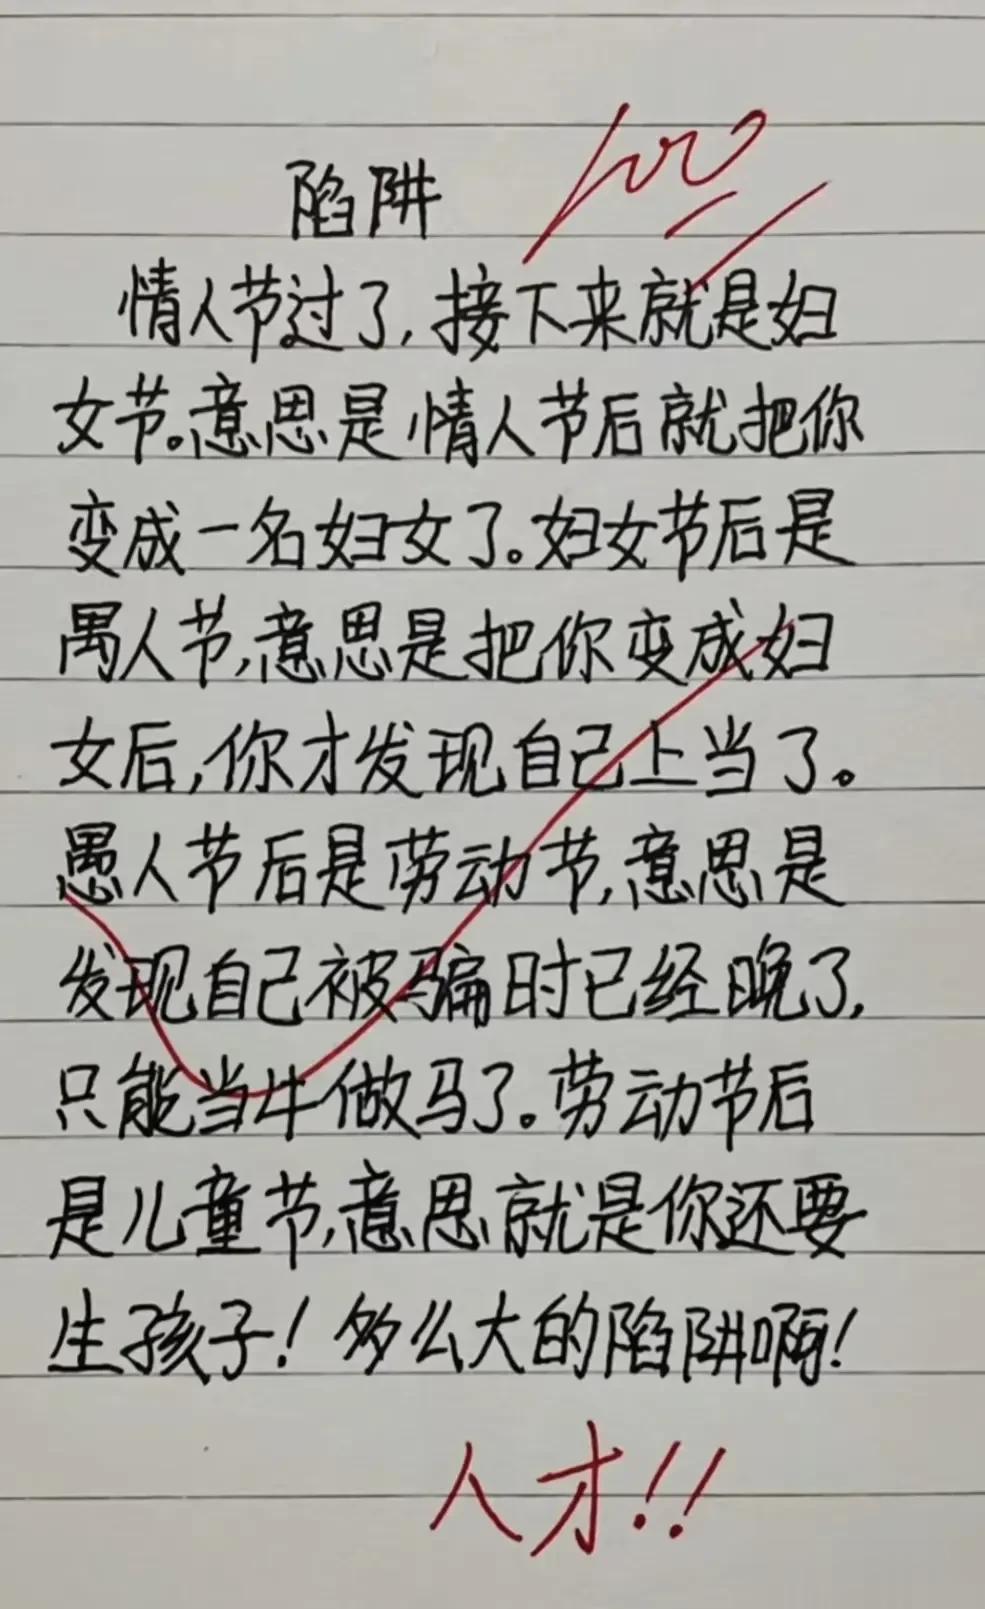 陷阱
100
情人节过了,接下来就是妇
女节。意思是情人节后就把你
变成一名妇女了。妇女节后是
禺人节,意思是把你变成妇
女后,你才发现自己上当了。
愚人节后是劳动节,意思是
发现自己被骗时已经晚了,
只能当牛做马了。劳动节后
是儿童节,意思就是你还要
生孩子!多么大的陷阱啊!
人才!!